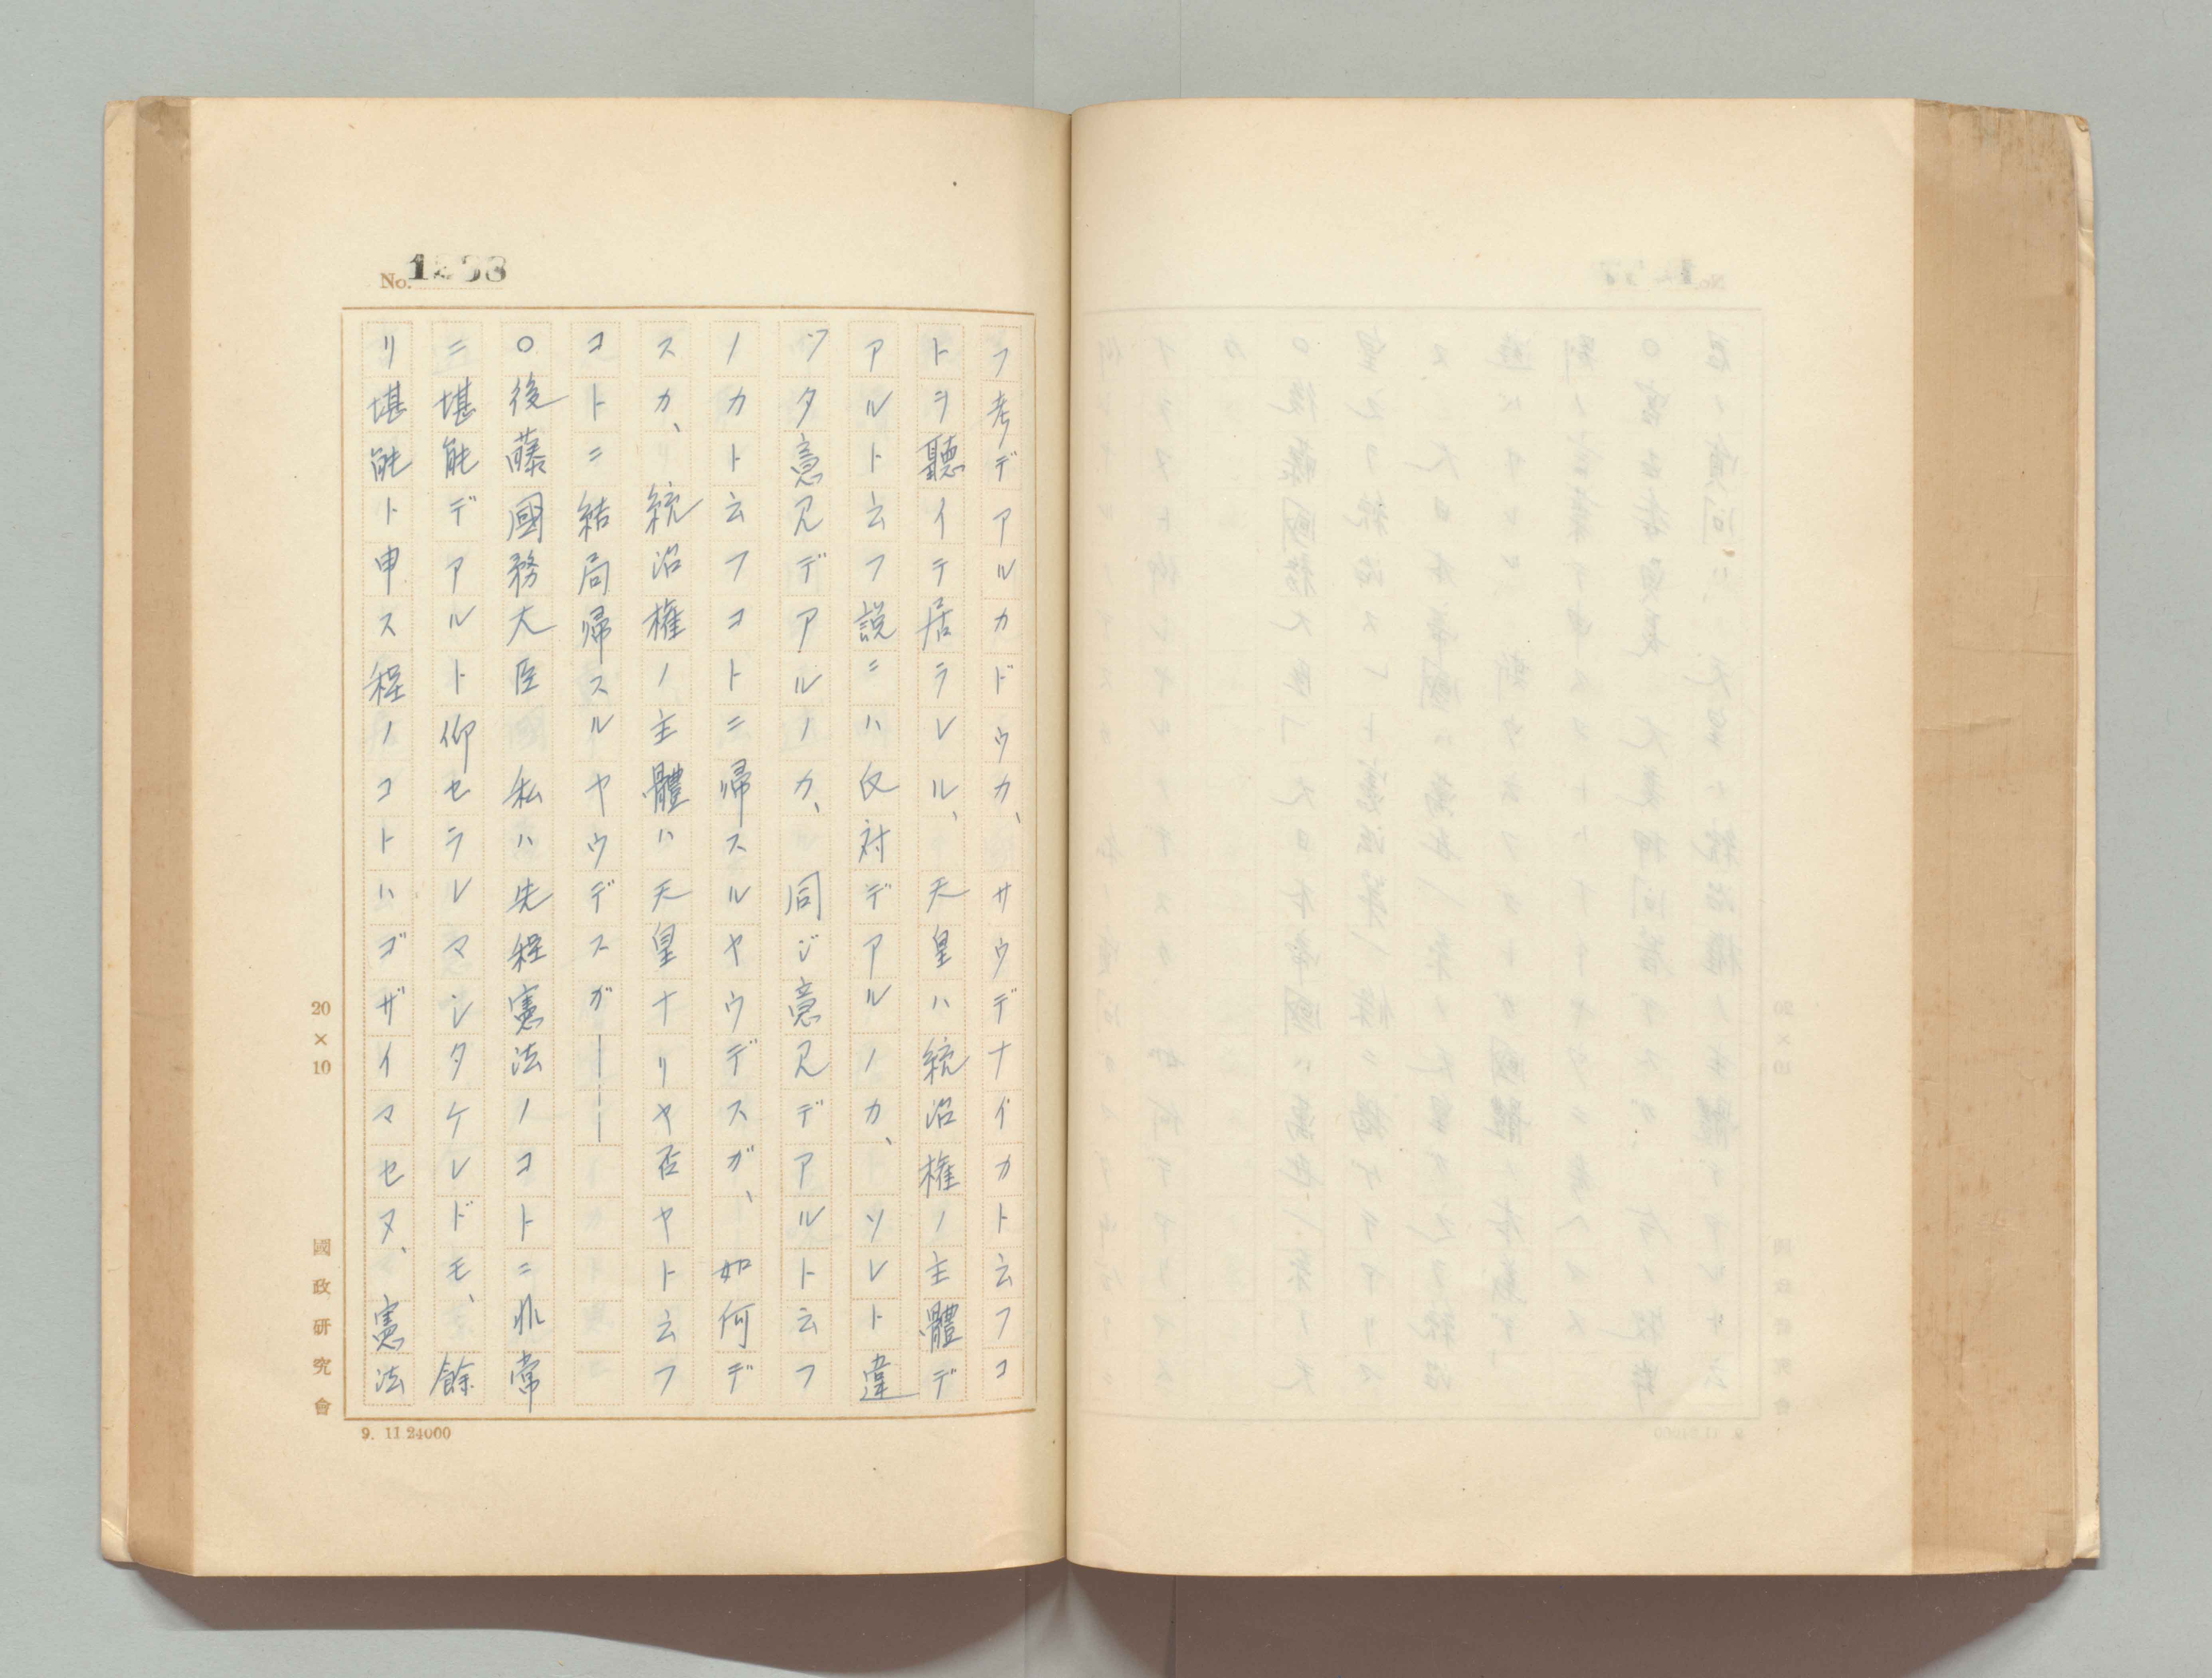 No.
フ考デアルカドウカ、サウデナイカト云フコ
トヲ聽イテ居ラレル、天皇ハ統治権ノ主體デ
アルト云フ説ニハ反対デアルノカ、ソレト違
ツタ意見デアルノカ、同ジ意見デアルト云フ
ノカト云フコトニ帰スルヤウデスガ、如何デ
スカ、統治権ノ主體ハ天皇ナリヤ否ヤト云フ
コトニ結局帰スルヤウデスガ――
〇後藤國務大臣 私ハ先程憲法ノコトニ非常
ニ堪能デアルト仰セラレマシタケレドモ、餘
リ堪能ト申ス程ノコトハゴザイマセヌ、憲法
20×10
國政研究會
9. 11 24000